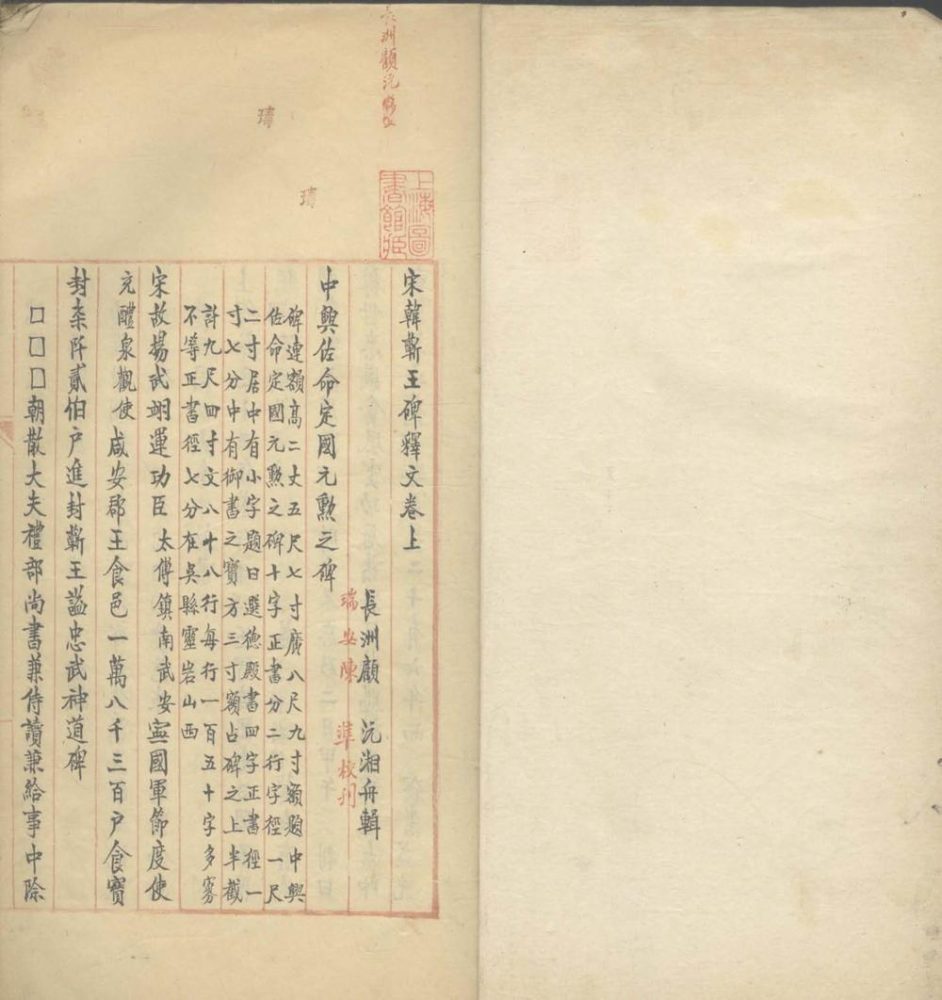 宋韓蘄王碑釋文卷上
長洲顧　沅湘舟輯
瑞安陳　準校刊
中興佐命定國元勲之碑
碑連額髙二丈五尺七寸廣八尺九寸額題中興
佐命定國元勲之碑十字正書分二行字徑一尺
二寸居中有小字題曰選德殿書四字正書徑一
寸七分中有御書之寳方三寸額占碑之上半截
計九尺四寸文八十八行每行一百五十字多寡
不等正書徑七分在吳縣靈岩山西
宋故揚武翊運功臣太傅鎮南武安寍國軍節度使
充醴泉觀使咸安郡王食邑一萬八千三百户食實
封柒阡貳伯户進封蘄王謚忠武神道碑
□□□朝散大夫禮部尚書兼侍讀兼給事中除
長洲顧沅
瑇
瑇
上海圖書館藏